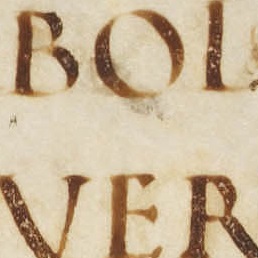 BOL
VER